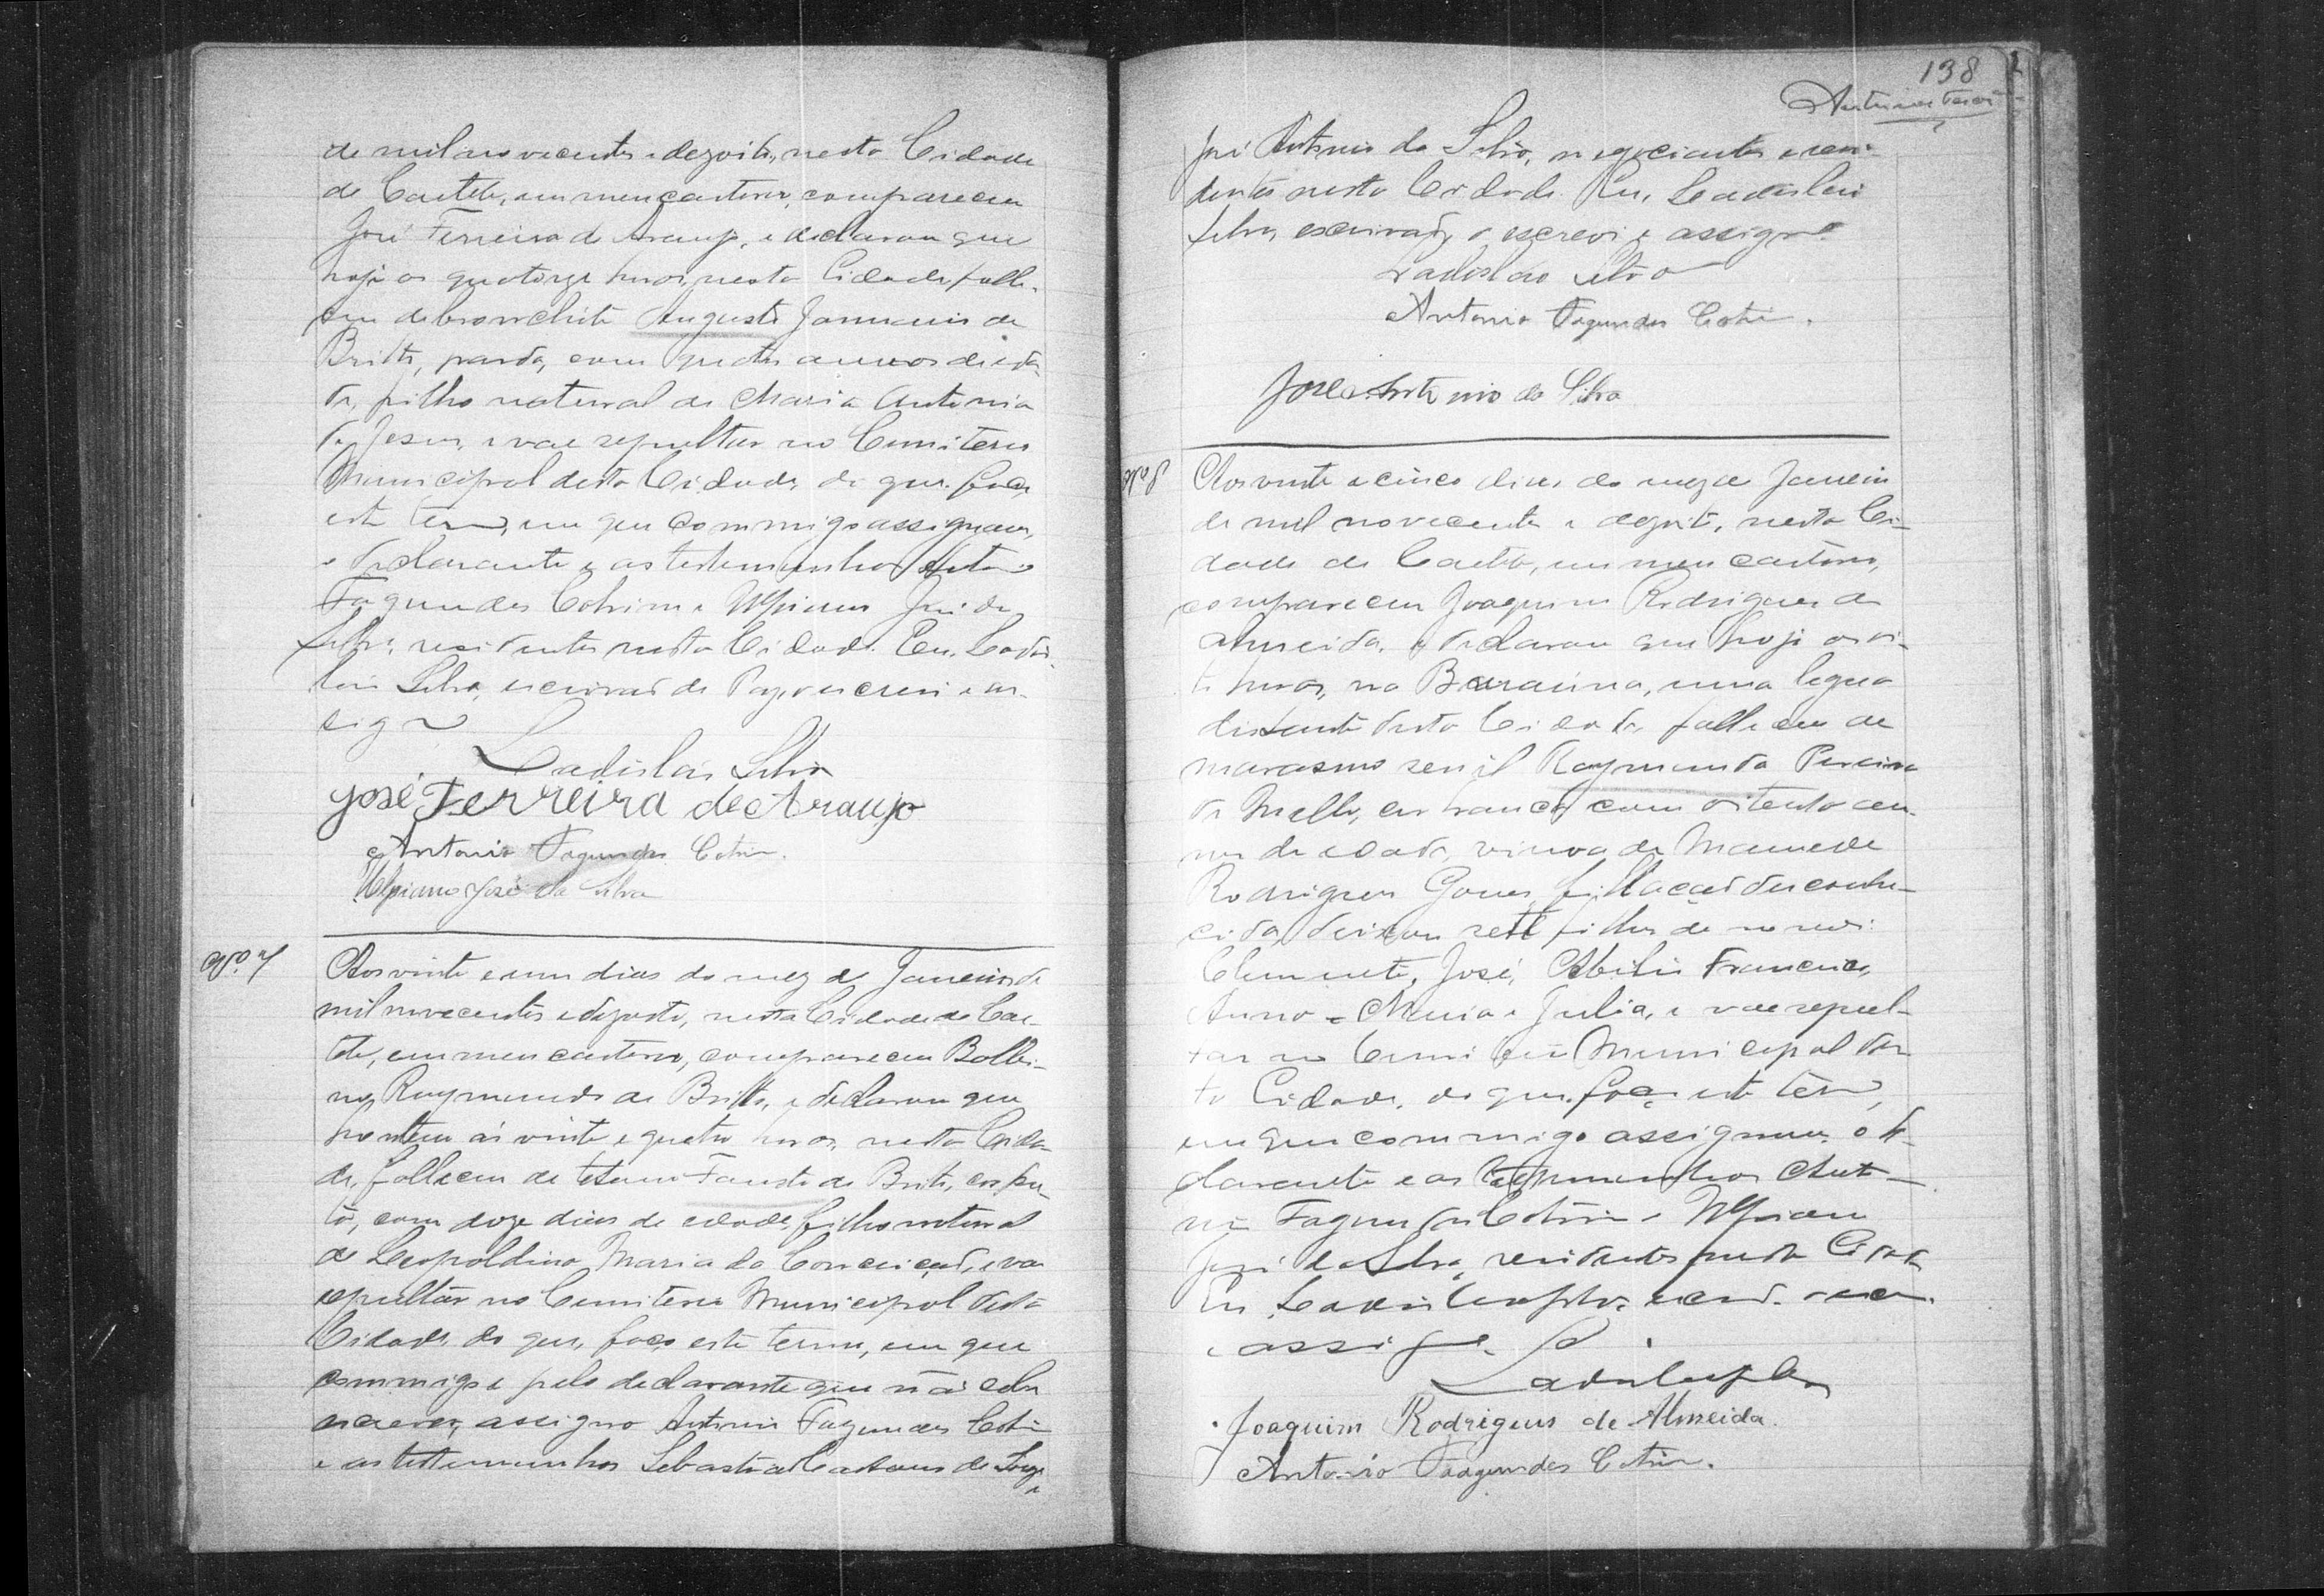 de mil novecentos e dezoito, nesta Cidade
de Caeteté, em meu cartorio, compareceu
José Ferreira de Araujo, e declarou que
hoje as quatorze horas, nesta Cidade, falle-
ceu de bronchite Augusto Januario de
Britto, pardo, com quatro annos de ida-
de, filho natural de Maria Antonia
de Jesus, e vae sepultar no Cemiterio
Municipal desta Cidade, do que, faço
este termo, em que commigo assignam,
o declarante e as testemunhas Antonio
Fagundes Cotrim e Ulpiano José da
Silva, residentes nesta Cidade. Eu, Ladis-
láo Silva, escrivão de Paz, o escrevi e as-
signo
Ladisláo Silva
José Ferreira de Araujo
Antonio Fagundes Cotrim.
Ulpiano José da Silva
Nº. 7
Aos vinte e um dias do mez de Janeiro de
mil novecentos e dezoito, nesta Cidade de Cae-
teté, em meu cartorio, compareceu
Raymundo de Britto, e declarou que
hontem ás vinte e quatro horas, nesta Cida-
de, falleceu de tetano Fausto de Brito,
com doze dias de edade, filho natural
de Leopoldina Maria da Conceição, e vae
sepultar no Cemiterio Municipal desta
Cidade, do que, faço este termo, em que
commigo e pelo declarante que não sabe
escrever, assigno Antonio Fagundes Cotrim
e as testemunhas Sebastião de
138
José Antonio da Silva, negociantes e resi-
dentes nesta Cidade. Eu, Ladisláo
Silva, escrivão, o escrevi e assigno.
Ladisláo Silva
Antonio Fagundes Cotrim.
José Antonio da Silva
Nº 8
Aos vinte e cinco dias do mez de Janeiro
de mil novecentos e dezoito, nesta Ci-
dade de Caeteté, em meu cartorio,
compareceu Joaquim Rodrigues de
Almeida, e declarou que hoje as vin-
te horas, na Barauna, uma legua
distante desta Cidade, falleceu de
marasmo senil Raymunda Pereira
de Mello, branca, com oitenta an-
nos de edade, viuva de Mamede
Rodrigues Gomes, filiacão desconhe-
cida, deixou sete filhos de nomes:
Clemente, José, Abilio, Francisco,
Anna = Maria e Julia, e vae sepul-
tar no Cemiterio Municipal des-
ta Cidade, do que, faço este termo,
em que commigo assignam, o de-
clarante e as testemunhas Anto-
nio Fagundes Cotrim e Ulpiano
José da Silva, residentes nesta Cidade
Eu, Ladisláo Silva,
e assigno.
Ladisláo Silva
Joaquim Rodrigeus de Almeida.
Antonio Fagundes Cotrim.